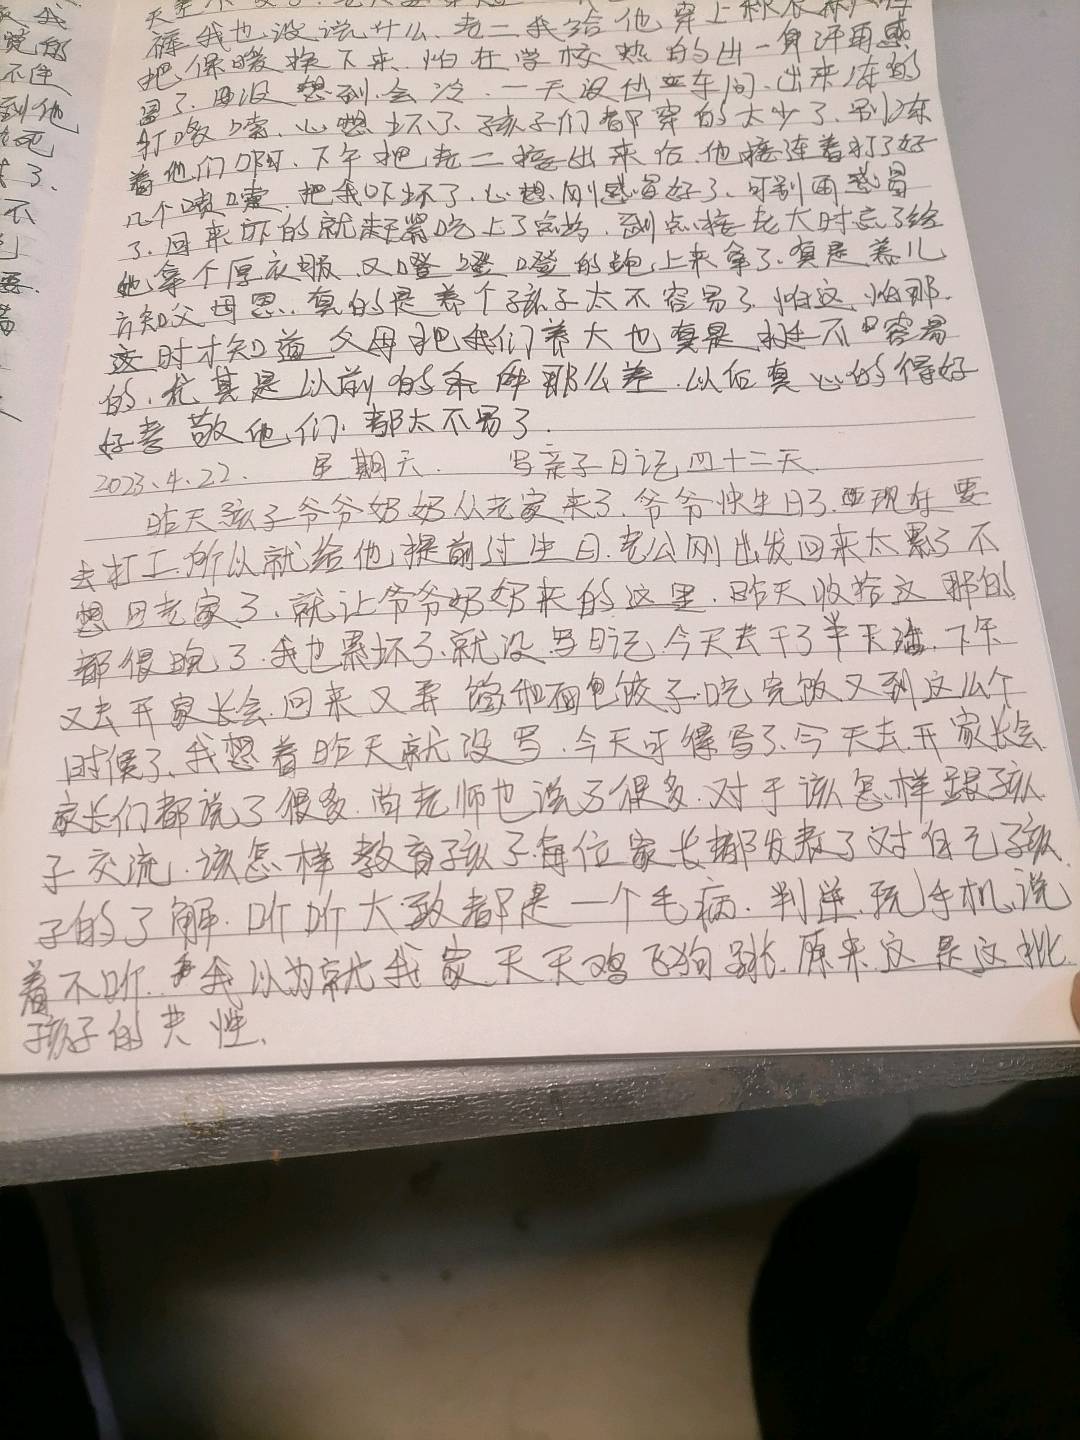 裤我也没说什么、老二我给他穿上秋衣秋
把保暖换下来、怕在学校热的出一身汗再感
冒了、没想到会冷、一天没出车间、出来冻的
打哆嗦、心想坏了孩子们都穿的太少了、别冻
着他们啊、下午把老二接出来后、他接连着打了好
几个喷嚏、把我吓坏了、心想刚感冒好了、可别再感冒
了、回来吓的就赶紧吃上了点药、到点接老大时忘了给
她拿个厚衣服、又噔噔噔的跑上来拿了、真是养儿
方知父母恩、真的是养个孩子太不容易了、怕这怕那、
这时才知道父母把我们养大也真是挺不容易
的、尤其是以前的条件那么差、以后真心的得好
好孝敬他们、都太不易了、
2023.4.22. 星期天. 写亲子日记四十三天.
昨天孩子爷爷奶奶从老家来了、爷爷快生日了、现在要
去打工、所以就给他提前过生日、老公刚出发回来太累了不
想回老家了、就让爷爷奶奶来的这里、昨天收拾这那的
都很晚了、我也累坏了、就没写日记、今天去干了半天活、下午
又去开家长会、回来又弄馅和面包饺子、吃完饭又到这么个
时候了、我想着昨天就没写、今天可得写了、今天去开家长会
家长们都说了很多、尚老师也说了很多、对于该怎样跟孩
子交流、该怎样教育孩子、每位家长都发表了对自己孩
子的了解、听听大致都是一个毛病、判逆、玩手机、说
着不听、我以为就我家天天鸡飞狗跳、原来这是这批
孩子的共性、